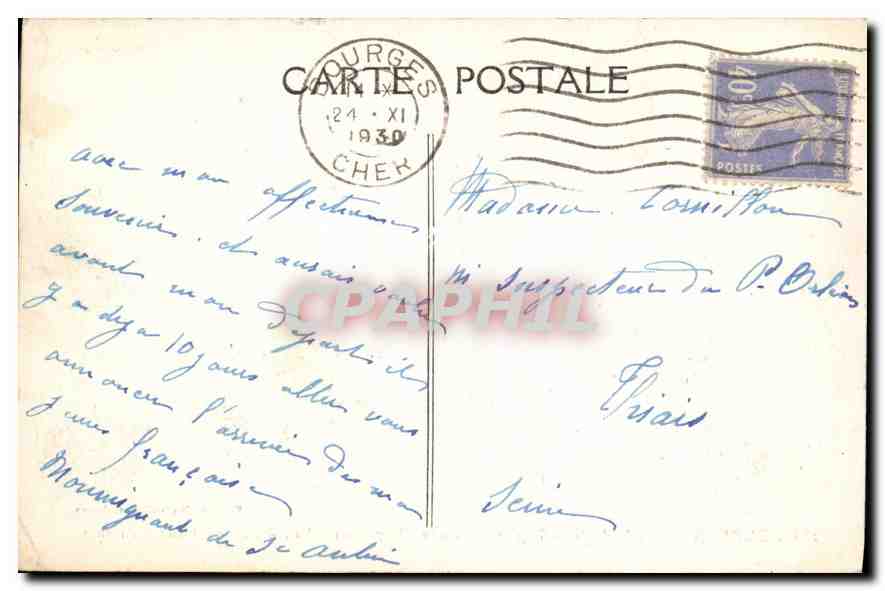 CARTE POSTALE
BOURGES
24 . XI
1930
CHER
40c
POSTES
avec mon affectueux
souvenir. et aurais
avant mon départ ils
y a deja 10 jours aller vous
annoncer l'arrivée de ma
Françoise
de St Aubin
Madame Cornillon
Inspecteur du P. Orléans
Thiais
Seine
CPAPHIL